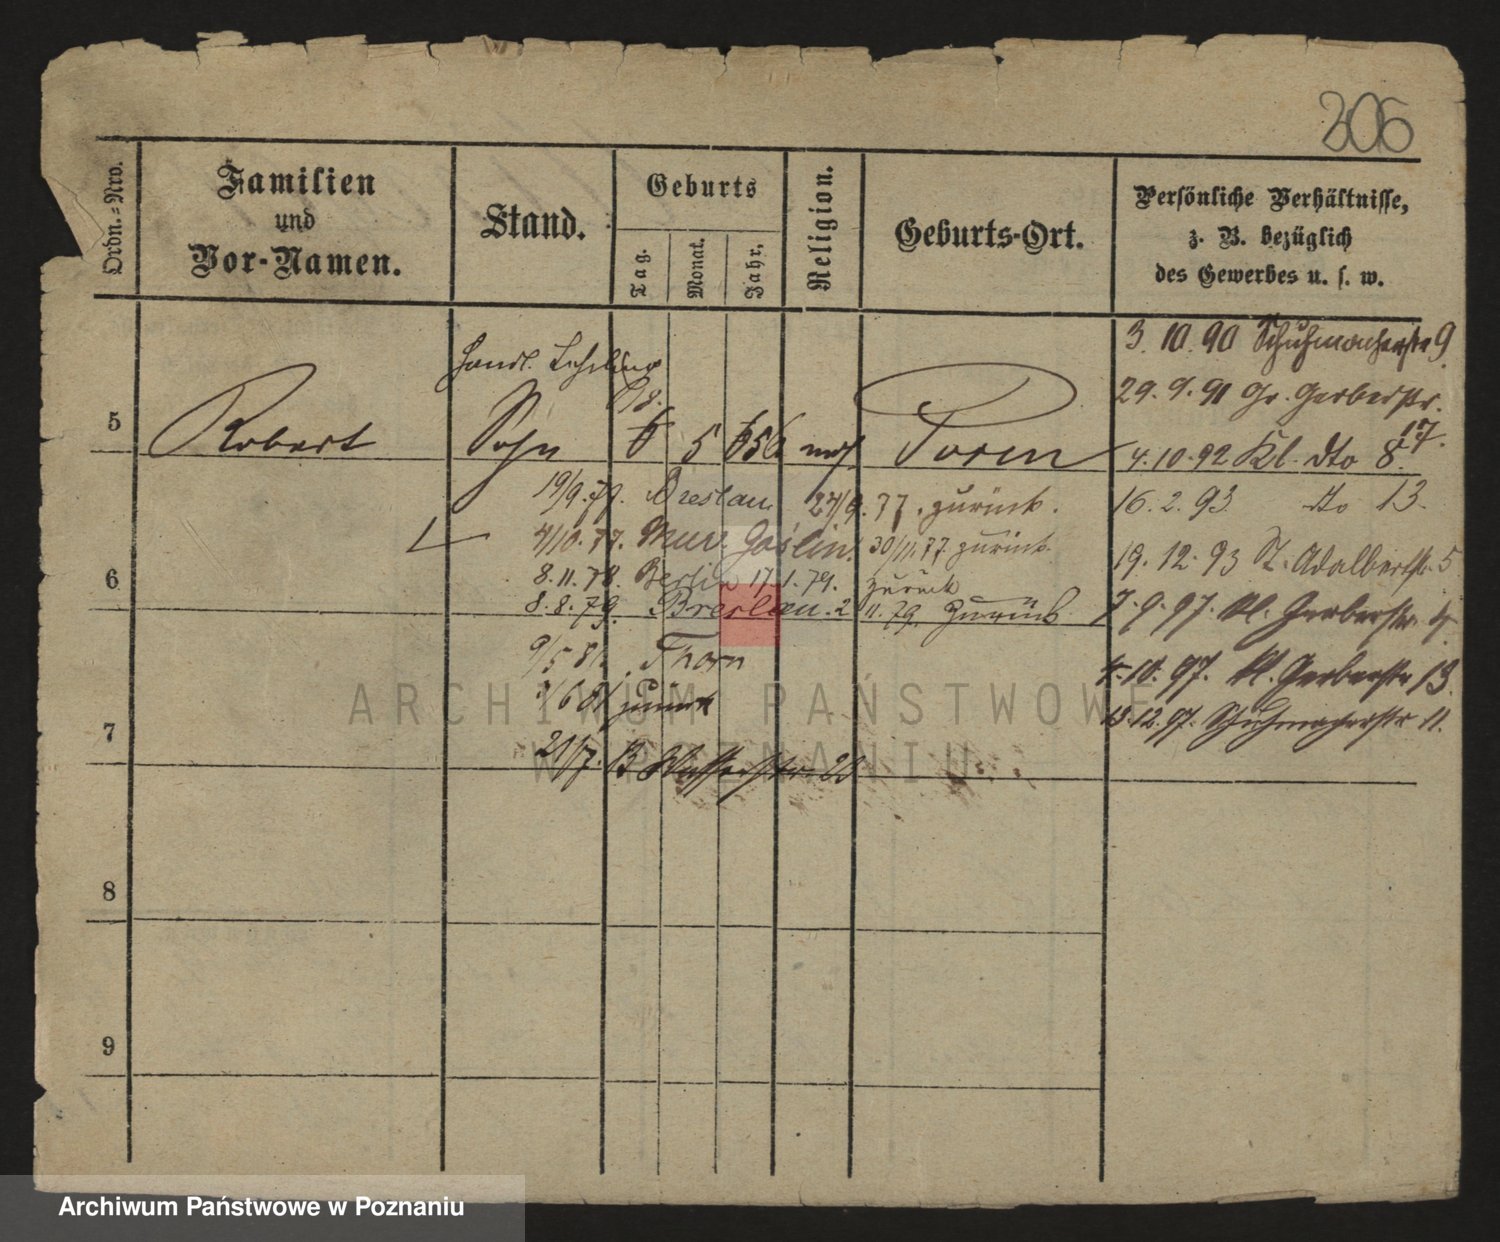 206
Ordn.=Nro.
Familien
und
Vor-Namen.
Stand.
Geburts
Tag.
Monat.
Jahr.
Religion.
Geburts-Ort.
Persönliche Verhältnisse,
z. B. bezüglich
des Gewerbes u. s. w.
Handl. Lehrling
5
Robert
Sohn
5
56
mos.
Posen
19/9. 79. Breslau 27/9. 77. zurück.
4/10. 77. Mur. Goslin. 30/11. 77. zurück.
6
8. 11. 78. Berlin 17. 1. 79. zurück
8. 8. 79. Breslau. 2 11. 79. Zurück
9/5 81. Thorn
6 81 zurück
7
B. Wasserstr. 25
8
9
3. 10. 90 Schuhmacherstr 9
29. 9. 91 Gr. Gerberstr.
17.
4. 10. 92 Kl. dto 8.
16. 2. 93. dto 13.
19. 12. 93 St. Adalbertstr. 5
7. 9. 97. Kl. Gerberstr.
4. 10. 97. Kl. Gerberstr 13
13. 12. 97. Schuhmacherstr 11.
ARCHIWUM PAŃSTWOWE
W POZNANIU
Archiwum Państwowe w Poznaniu